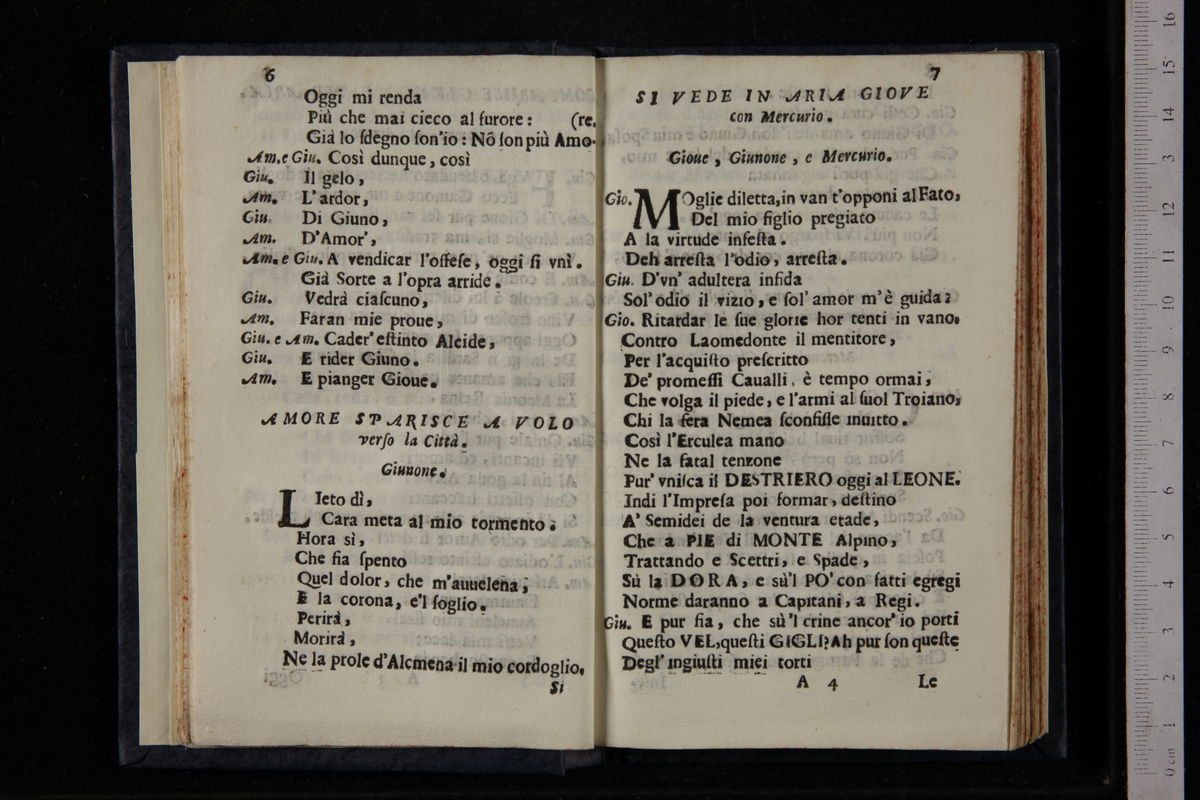 6
Oggi mi renda
Più che mai cieco al furore : (re.
Già lo ſdegno ſon'io : Nō ſon più Amo-
Am. e Giu. Così dunque, così
Giu. Il gelo,
Am. L'ardor,
Giu. Di Giuno,
Am. D'Amor',
Am. e Giu. A vendicar l'offeſe, oggi ſi vnì.
Già Sorte a l'opra arride.
Giu. Vedrà ciaſcuno,
Am. Faran mie proue,
Giu. e Am. Cader' eſtinto Alcide,
Giu. E rider Giuno.
Am. E pianger Gioue.
AMORE SPARISCE A VOLO
verſo la Città.
Giunone.
LIeto dì,
Cara meta al mio tormento.
Hora sì,
Che fia ſpento
Quel dolor, che m'auuelena;
E la corona, e'l ſoglio.
Perirà,
Morirà,
Ne la prole d'Alcmena il mio cordoglio.
Si
7
SI VEDE IN ARIA GIOVE
con Mercurio.
Gioue, Giunone, e Mercurio.
Gio. MOglie diletta, in van t'opponi al Fato,
Del mio figlio pregiato
A la virtude infeſta.
Deh arreſta l'odio, arreſta.
Giu. D'vn' adultera infida
Sol' odio il vizio, e ſol' amor m'è guida?
Gio. Ritardar le ſue glorie hor tenti in vano.
Contro Laomedonte il mentitore,
Per l'acquiſto preſcritto
De' promeſſi Caualli, è tempo ormai,
Che volga il piede, e l'armi al ſuol Troiano,
Chi la fera Nemea ſconfiſſe inuitto.
Così l'Erculea mano
Ne la fatal tenzone
Pur' vniſca il DESTRIERO oggi al LEONE.
Indi l'Impreſa poi formar, deſtino
A' Semidei de la ventura etade,
Che a PIE di MONTE Alpino,
Trattando e Scettri, e Spade,
Sù la DORA, e sù'l PO' con fatti egregi
Norme daranno a Capitani, a Regi.
Giu. E pur fia, che sù'l crine ancor' io porti
Queſto VEL, queſti GIGLI? Ah pur ſon queſte
Degl' ingiuſti miei torti
A 4 Le